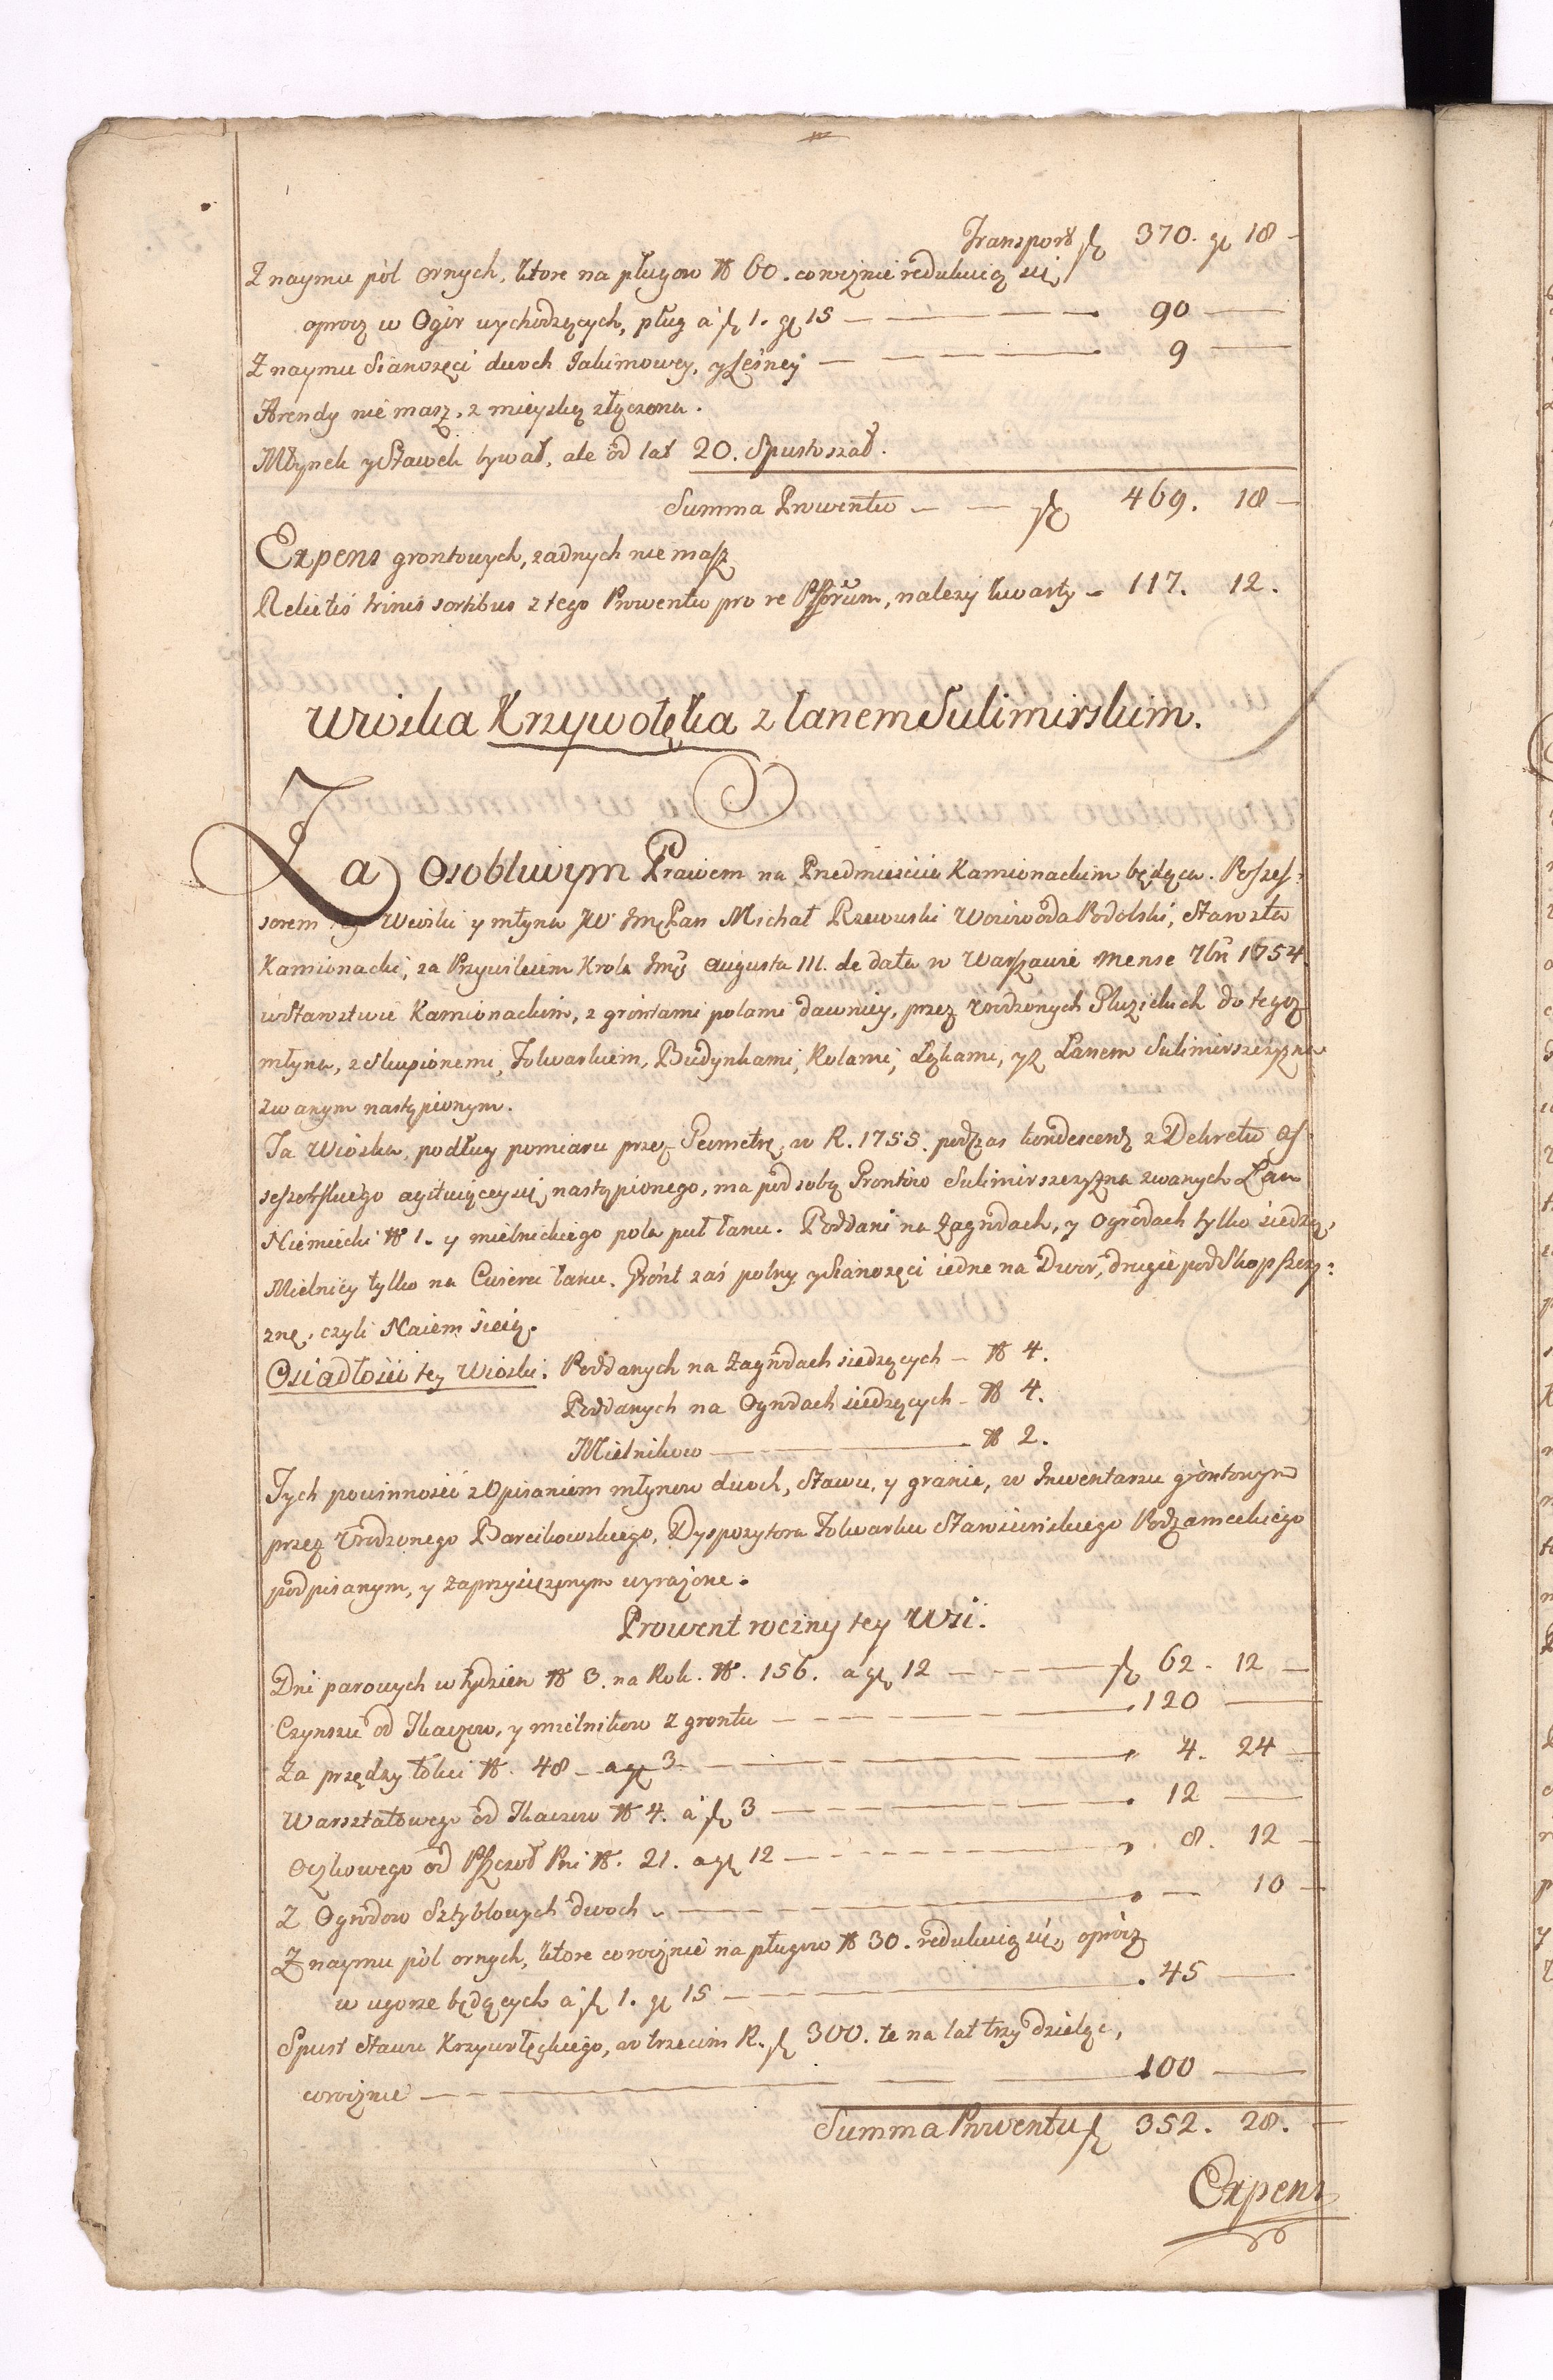 Transport fl 370. gr 18
Z naymu pól ornych, ktore na pługow N 60. corocznie redukuią się,
oprocz w Ogór wychodzących, pług a fl 1. gr 15 — 90 —
Z naymu Sianożęci dwoch Jalimowey, y Leśney — 9 —
Arendy nie masz, z mieyską złączona.
Młynek y Stawek bywał, ale od lat 20. Spustoszał.
Summa Prowentu — fl 469. 18
Expens grontowych, żadnych nie masz
Relictis trinis sortibus z tego Prowentu pro re Pssorum, należy kwarty — 117. 12.
Wioska Krzywołęka z łanem Sulimirskim.
Za Osobliwym Prawem na Przedmieściu Kamionackim będąca. Posses:
sorem tey Wioski y młyna JW Jmć Pan Michał Rzewuski Woiewoda Podolski, Starosta
Kamionacki, za Przywileiem Krola Jmći Augusta III. de data w Warszawie mense 7brii 1754
w Starostwie Kamionackim, z gróntami polami dawniey, przez Urodzonych Pluzickich do tegoż
młyna, zskupionemi, Folwarkiem, Budynkami, Rolami, Łąkami, y z Łanem Sulimirszczyzna
zwanym nastąpionym.
Ta Wioska, podług pomiaru przez Geometrę, w R. 1755. podczas kondescens z Dekretu As:
sessorskiego agituiącey się, nastąpionego, ma pod sobą Grontów Sulimirszczyzna zwanych Łan
Niemiecki N 1. y mielnickiego pola puł łanu. Poddani na Zagrodach, y Ogrodach tylko siedzą,
Mielnicy tylko na Cwierci łanu. Grónt zaś polny y Sianożęci iedne na Dwór, drugie pod Skopszczy:
znę, czyli Naiem sieią.
Osiadłości tey Wioski: Poddanych na Zagrodach siedzących — N 4.
Poddanych na Ogrodach siedzących — N 4.
Mielnikow — N 2.
Tych powinność z Opisaniem młynow dwoch, Stawu, y granic, w Inwentarzu gróntowym
przez Urodzonego Barcikowskiego, Dyspozytora Folwarku Podzameckiego
podpisanym, y zaprzysiężonym wyrażone.
Prowent roczny tey Wsi.
Dni parowych w tydzien N 3. na Rok. N. 156. a gr 12 — fl 62. 12 —
Czynszu od Tkaczow, y mielnikow z grontu — 120 —
Za przędzy łokci N. 48 — a gr 3 — 4. 24 —
Warsztatowego od Tkaczow N 4. a fl 3 — 12 —
Oczkowego od Pszczoł Pni N. 21. a gr 12 — 8. 12 —
Z Ogrodow Sztyblowych dwoch — 10 —
Z naymu pól ornych, ktore corocznie na pługow N 30. redukuią się, oprócz
w ugorze będących a fl 1. gr 15 — 45 —
Spust Stawu Krzywołęckiego, w trzecim R. fl 300. te na lat trzy dzieląc,
corocznie — 100 —
Summa Prowentu fl 352. 28.
Expens